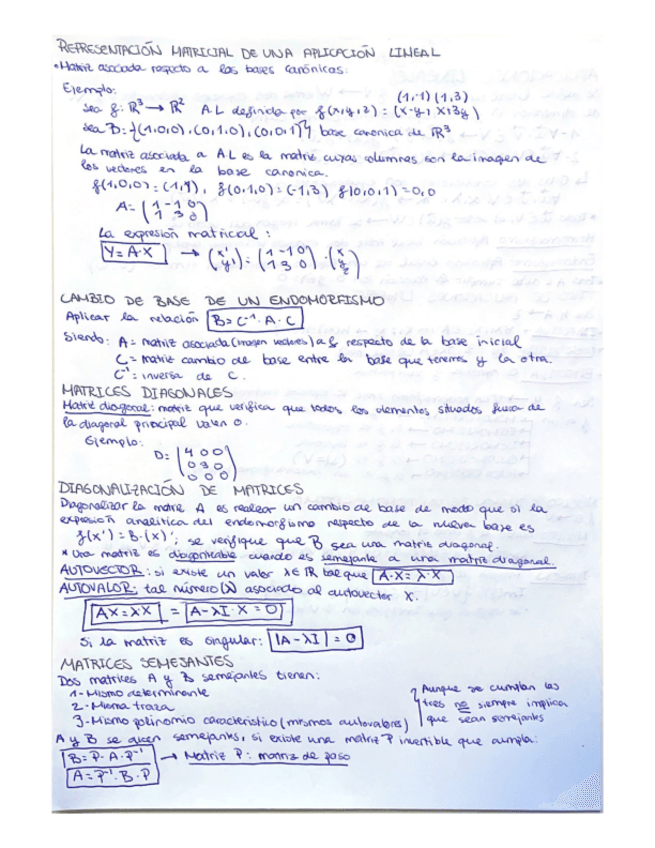 REPRESENTACIÓN MATRICIAL DE UNA APLICACIÓN LINEAL
• Matriz asociada respecto a las bases canónicas:
Ejemplo:
(1,-1) (1,3)
sea f: ℝ³ → ℝ² A.L definida por f(x,y,z) = (x-y, x+3y)
sea B = {(1,0,0), (0,1,0), (0,0,1)} base canonica de ℝ³
La matriz asociada a A.L es la matriz cuyas columnas son la imagen de
los vectores en la base canonica.
f(1,0,0) = (1,1), f(0,1,0) = (-1,3) f(0,0,1) = 0,0
A = (1 -1 0
1 3 0)
La expresión matricial:
Y = A·X → (x' y') = (1 -1 0
1 3 0) · (x y z)
CAMBIO DE BASE DE UN ENDOMORFISMO
Aplicar la relación B = C⁻¹ · A · C
Siendo: A = matriz asociada (imagen vectores) a f respecto de la base inicial
C = matriz cambio de base entre la base que tenemos y la otra.
C⁻¹ = inversa de C.
MATRICES DIAGONALES
Matriz diagonal: matriz que verifica que todos los elementos situados fuera de
la diagonal principal valen 0.
Ejemplo:
D = (4 0 0
0 3 0
0 0 0)
DIAGONALIZACIÓN DE MATRICES
Diagonalizar la matriz A es realizar un cambio de base de modo que si la
expresión analítica del endomorfismo respecto de la nueva base es
f(x') = B·(x)', se verifique que B sea una matriz diagonal.
* Una matriz es diagonizable cuando es semejante a una matriz diagonal.
AUTOVECTOR: si existe un valor λ∈ℝ tal que A·X = λ·X
AUTOVALOR: tal número (λ) asociado al autovector X.
AX = λX = A-λI·X = 0
Si la matriz es singular: |A-λI| = 0
MATRICES SEMEJANTES
Dos matrices A y B semejantes tienen:
1- Mismo determinante
2- Misma traza
3- Mismo polinomio característico (mismos autovalores)
Aunque se cumplan las
tres no siempre implica
que sean semejantes
A y B se dicen semejantes, si existe una matriz P invertible que cumpla:
B = P·A·P⁻¹ → Matriz P: matriz de paso
A = P⁻¹·B·P